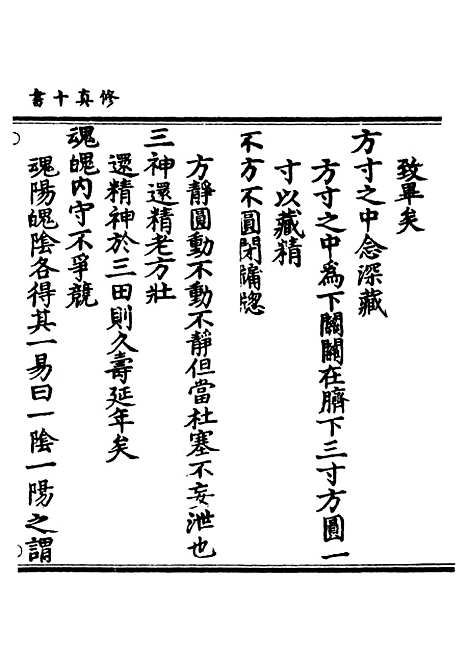 修真十書
致畢矣
方寸之中念深藏
方寸之中為下關關在臍下三寸方圓一
寸以藏精
不方不圓閉牖窻
方靜圓動不動不靜但當杜塞不妄泄也
三神還精老方壯
還精神於三田則久壽延年矣
魂魄內守不爭競
魂陽魄陰各得其一易曰一陰一陽之謂